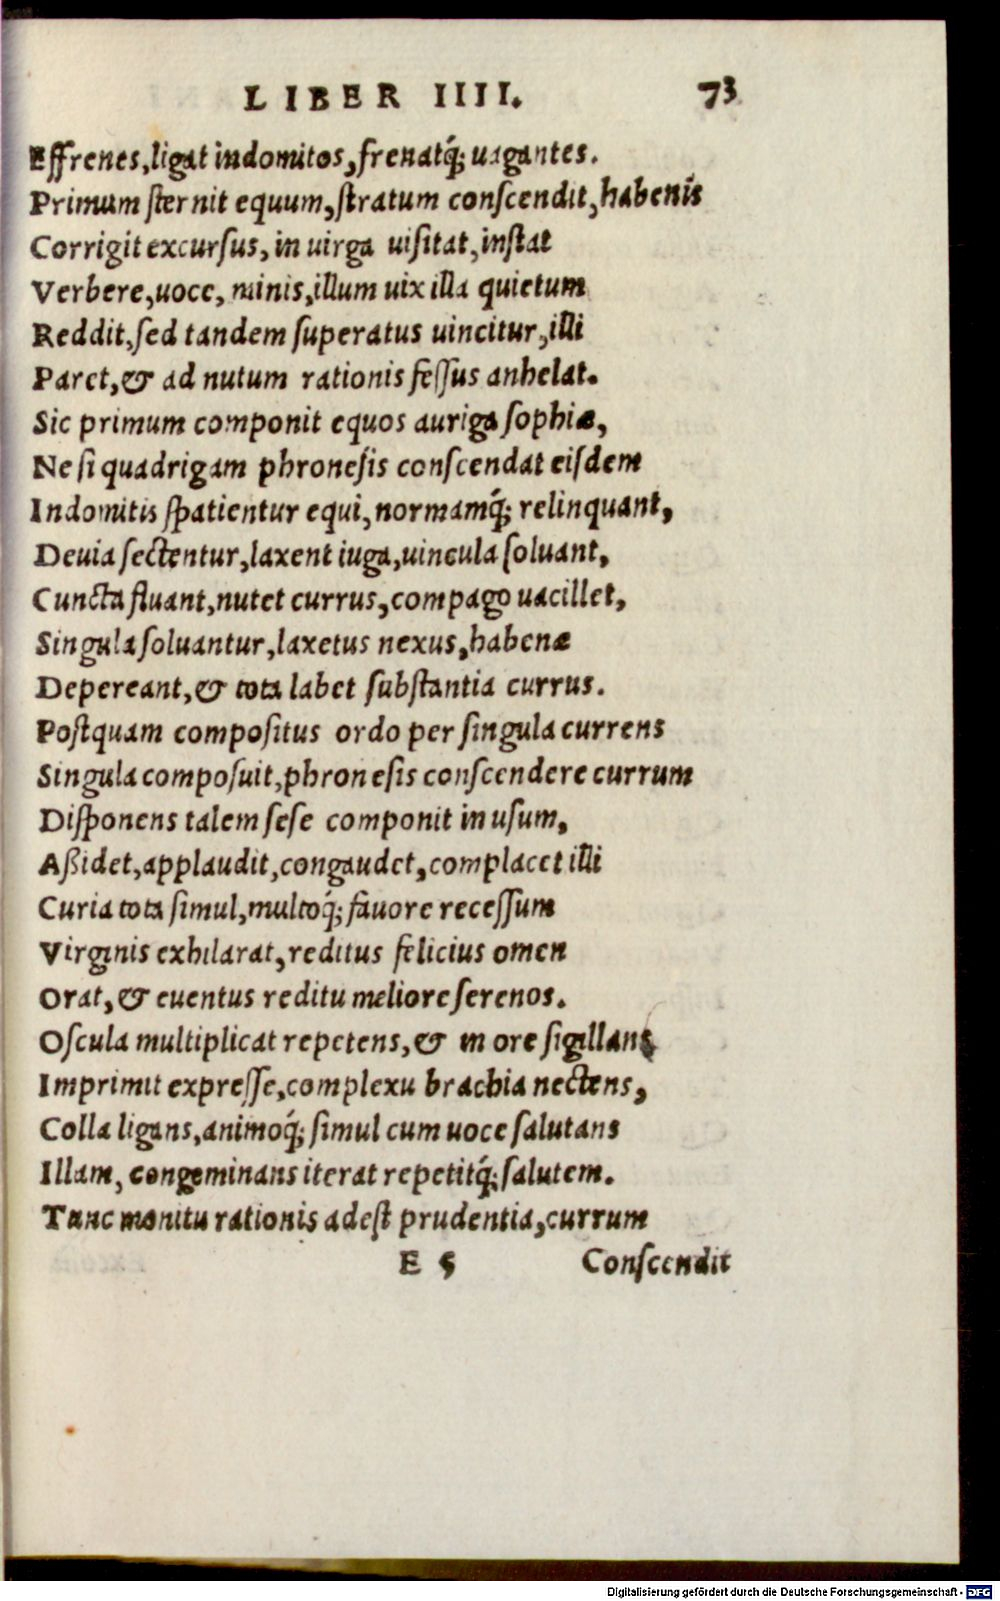 LIBER IIII. 73
Effrenes, ligat indomitos, frenatq́; uagantes.
Primum ſternit equum, ſtratum conſcendit, habenis
Corrigit excurſus, in uirga uiſitat, inſtat
Verbere, uoce, minis, illum uix illa quietum
Reddit, ſed tandem ſuperatus uincitur, illi
Paret, & ad nutum rationis feſſus anhelat.
Sic primum componit equos auriga ſophiæ,
Ne ſi quadrigam phroneſis conſcendat eiſdem
Indomitis ſpatientur equi, normamq́; relinquant,
Deuia ſectentur, laxent iuga, uincula ſoluant,
Cuncta fluant, nutet currus, compago uacillet,
Singula ſoluantur, laxetus nexus, habenæ
Depereant, & tota labet ſubſtantia currus.
Poſtquam compoſitus ordo per ſingula currens
Singula compoſuit, phroneſis conſcendere currum
Diſponens talem ſeſe componit in uſum,
Aßidet, applaudit, congaudet, complacet illi
Curia tota ſimul, multoq́; fauore receſſum
Virginis exhilarat, reditus felicius omen
Orat, & euentus reditu meliore ſerenos.
Oſcula multiplicat repetens, & in ore ſigillans
Imprimit expreſſe, complexu brachia nectens,
Colla ligans, animoq́; ſimul cum uoce ſalutans
Illam, congeminans iterat repetitq́; ſalutem.
Tunc monitu rationis adeſt prudentia, currum
E 5 Conſcendit
Digitalisierung gefördert durch die Deutsche Forschungsgemeinschaft - DFG